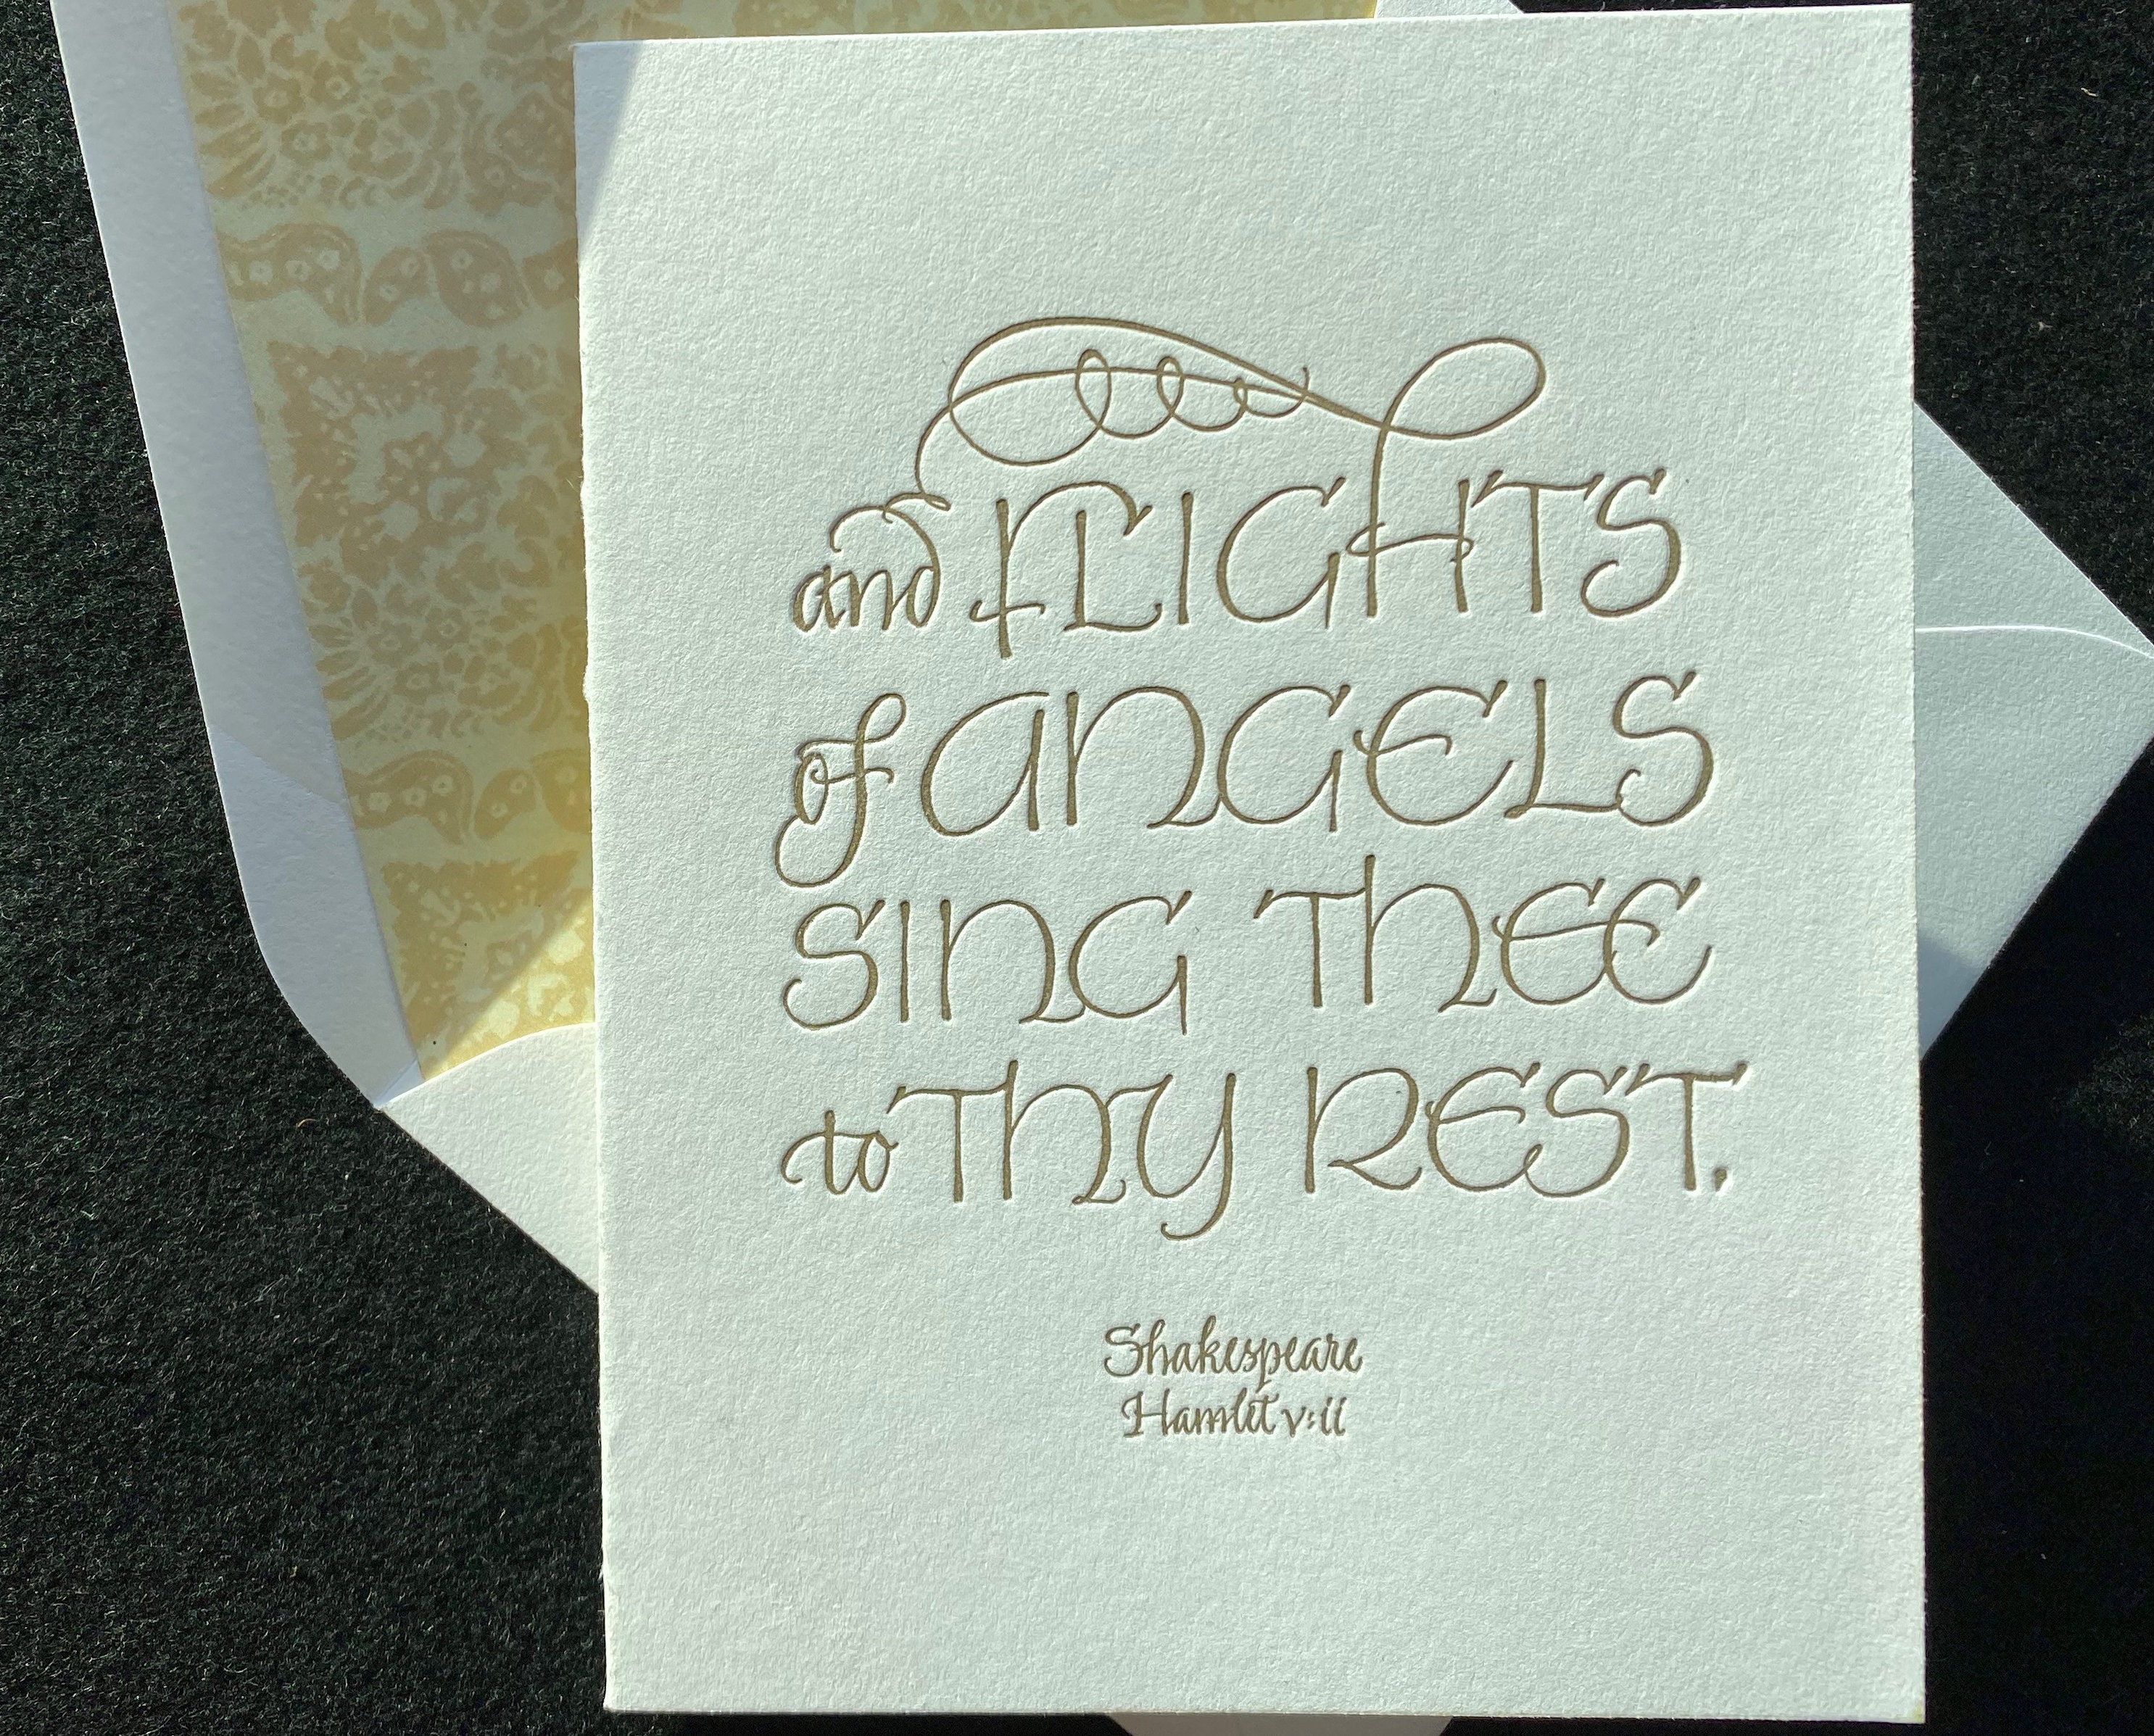 and FLIGHTS
of ANGELS
SING THEE
to THY REST.
Shakespeare
Hamlet v:ii